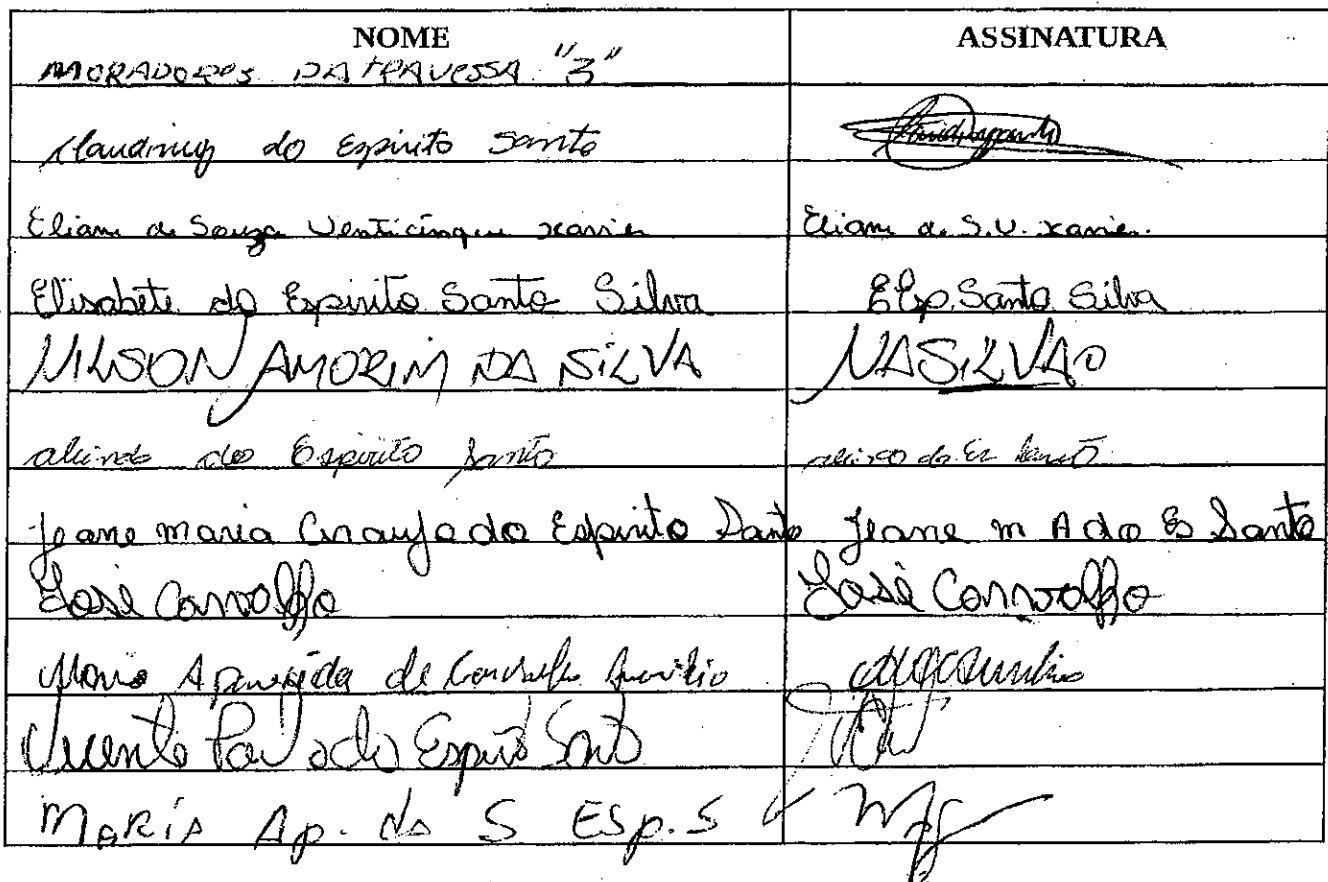 NOME ASSINATURA
MORADORES DA TRAVESSA "3"
do Espirito Santo
Eliane de Souza Venticinque xavier Eliane de S.V. xavier.
Elisabete do Espirito Santo Silva E Esp. Santo Silva
NILSON AMORIM DA SILVA NASILVAO
do Espirito Santo
Jeane maria Araujo do Espirito Santo Jeane m A do Es Santo
José Carvalho José Carvalho
Maria Aparecida de
Vicente do Espirito Santo
MARIA Ap. da S ESp. S